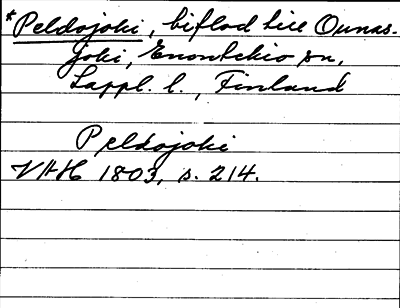 *Peldojoki, biflod till Ounas-
joki, Enontekio sn,
Lappl. l., Finland
Peldojoki
VAH 1803, s. 214.